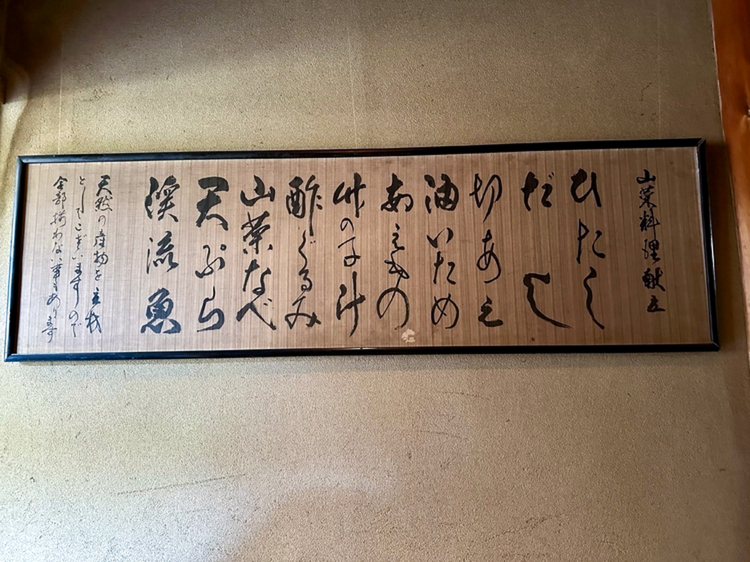 山菜料理献立
ひたし
だし
切あえ
油いため
あえもの
竹の子汁
酢ぐるみ
山菜なべ
天ぷら
渓流魚
天然の産物を主材
としてございますので
全部揃わない事もあります